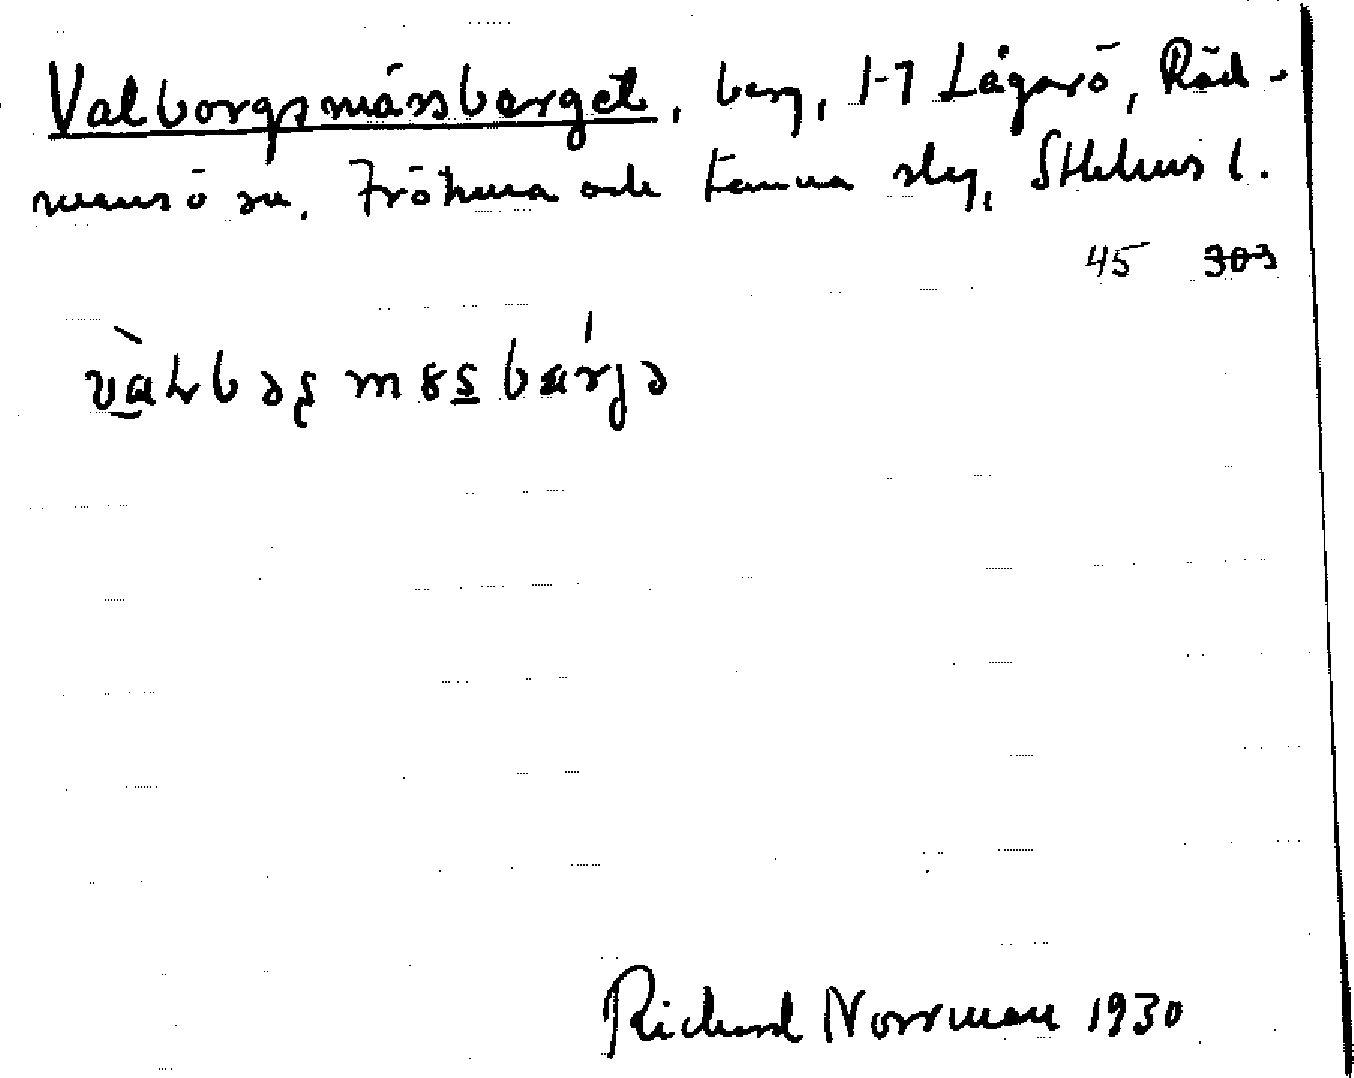 Valborgsmässberget, berg, 1-7 Lågarö, Räd-
mansö sn. Frötuna och Länna slg, Sthlms l.
45 303
vàlbəgmɛsbærjə
Richard Norrman 1930